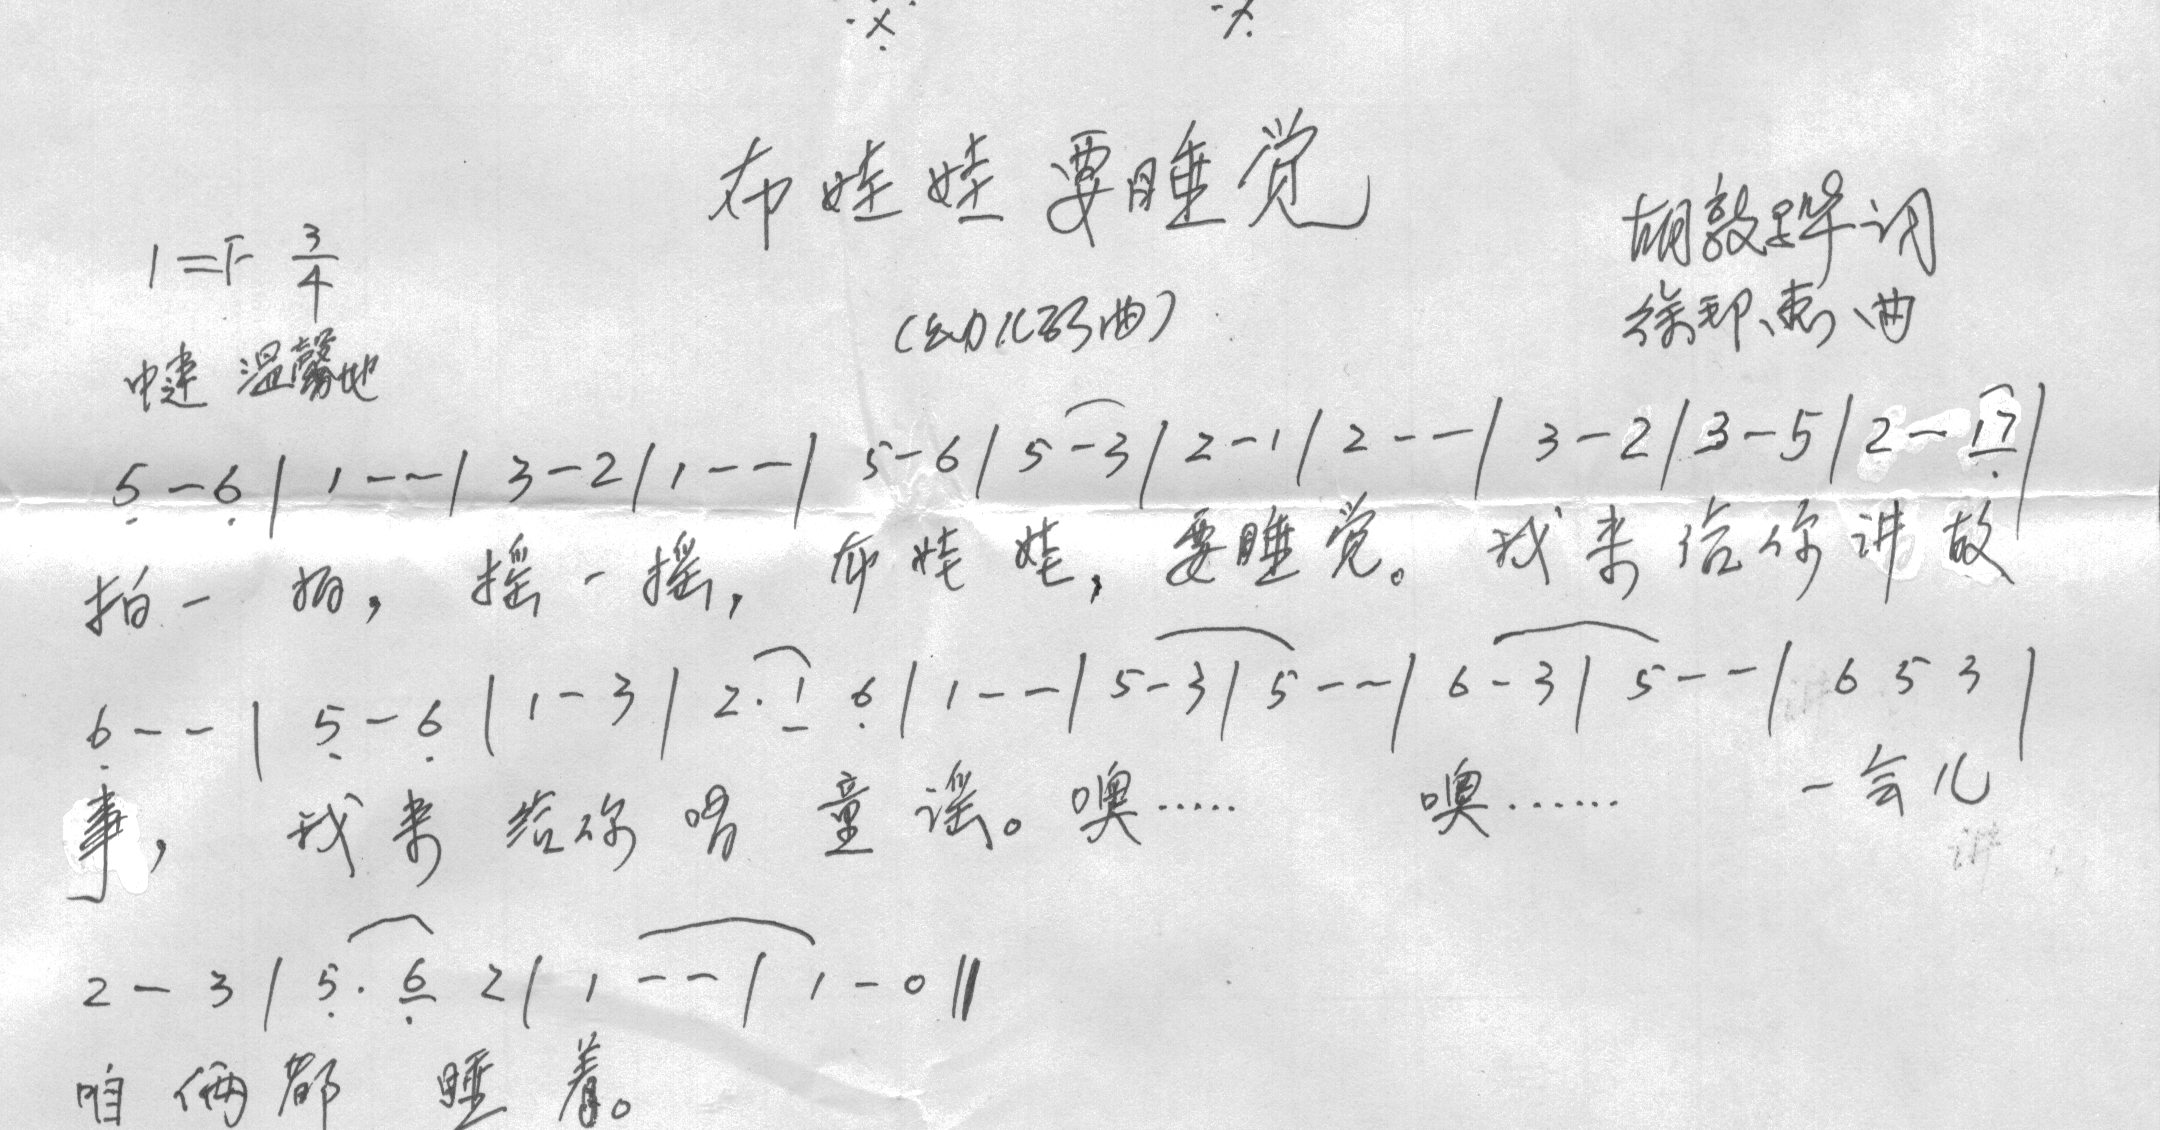 布娃娃要睡觉
1=F 3/4
胡敦骅词
(幼儿歌曲)
徐邦惠曲
中速 温馨地
5̣ - 6̣ | 1 - - | 3 - 2 | 1 - - | 5 - 6 | 5 - 3 | 2 - 1 | 2 - - | 3 - 2 | 3 - 5 | 2 - 17̣ |
拍一拍，摇一摇，布娃娃，要睡觉。我来给你讲故
6̣ - - | 5̣ - 6̣ | 1 - 3 | 2. 1 6̣ | 1 - - | 5 - 3 | 5 - - | 6 - 3 | 5 - - | 6 5 3 |
事，我来给你唱童谣。噢…… 噢…… 一会儿
2 - 3 | 5̣. 6̣ 2 | 1 - - | 1 - 0 ‖
咱俩都睡着。